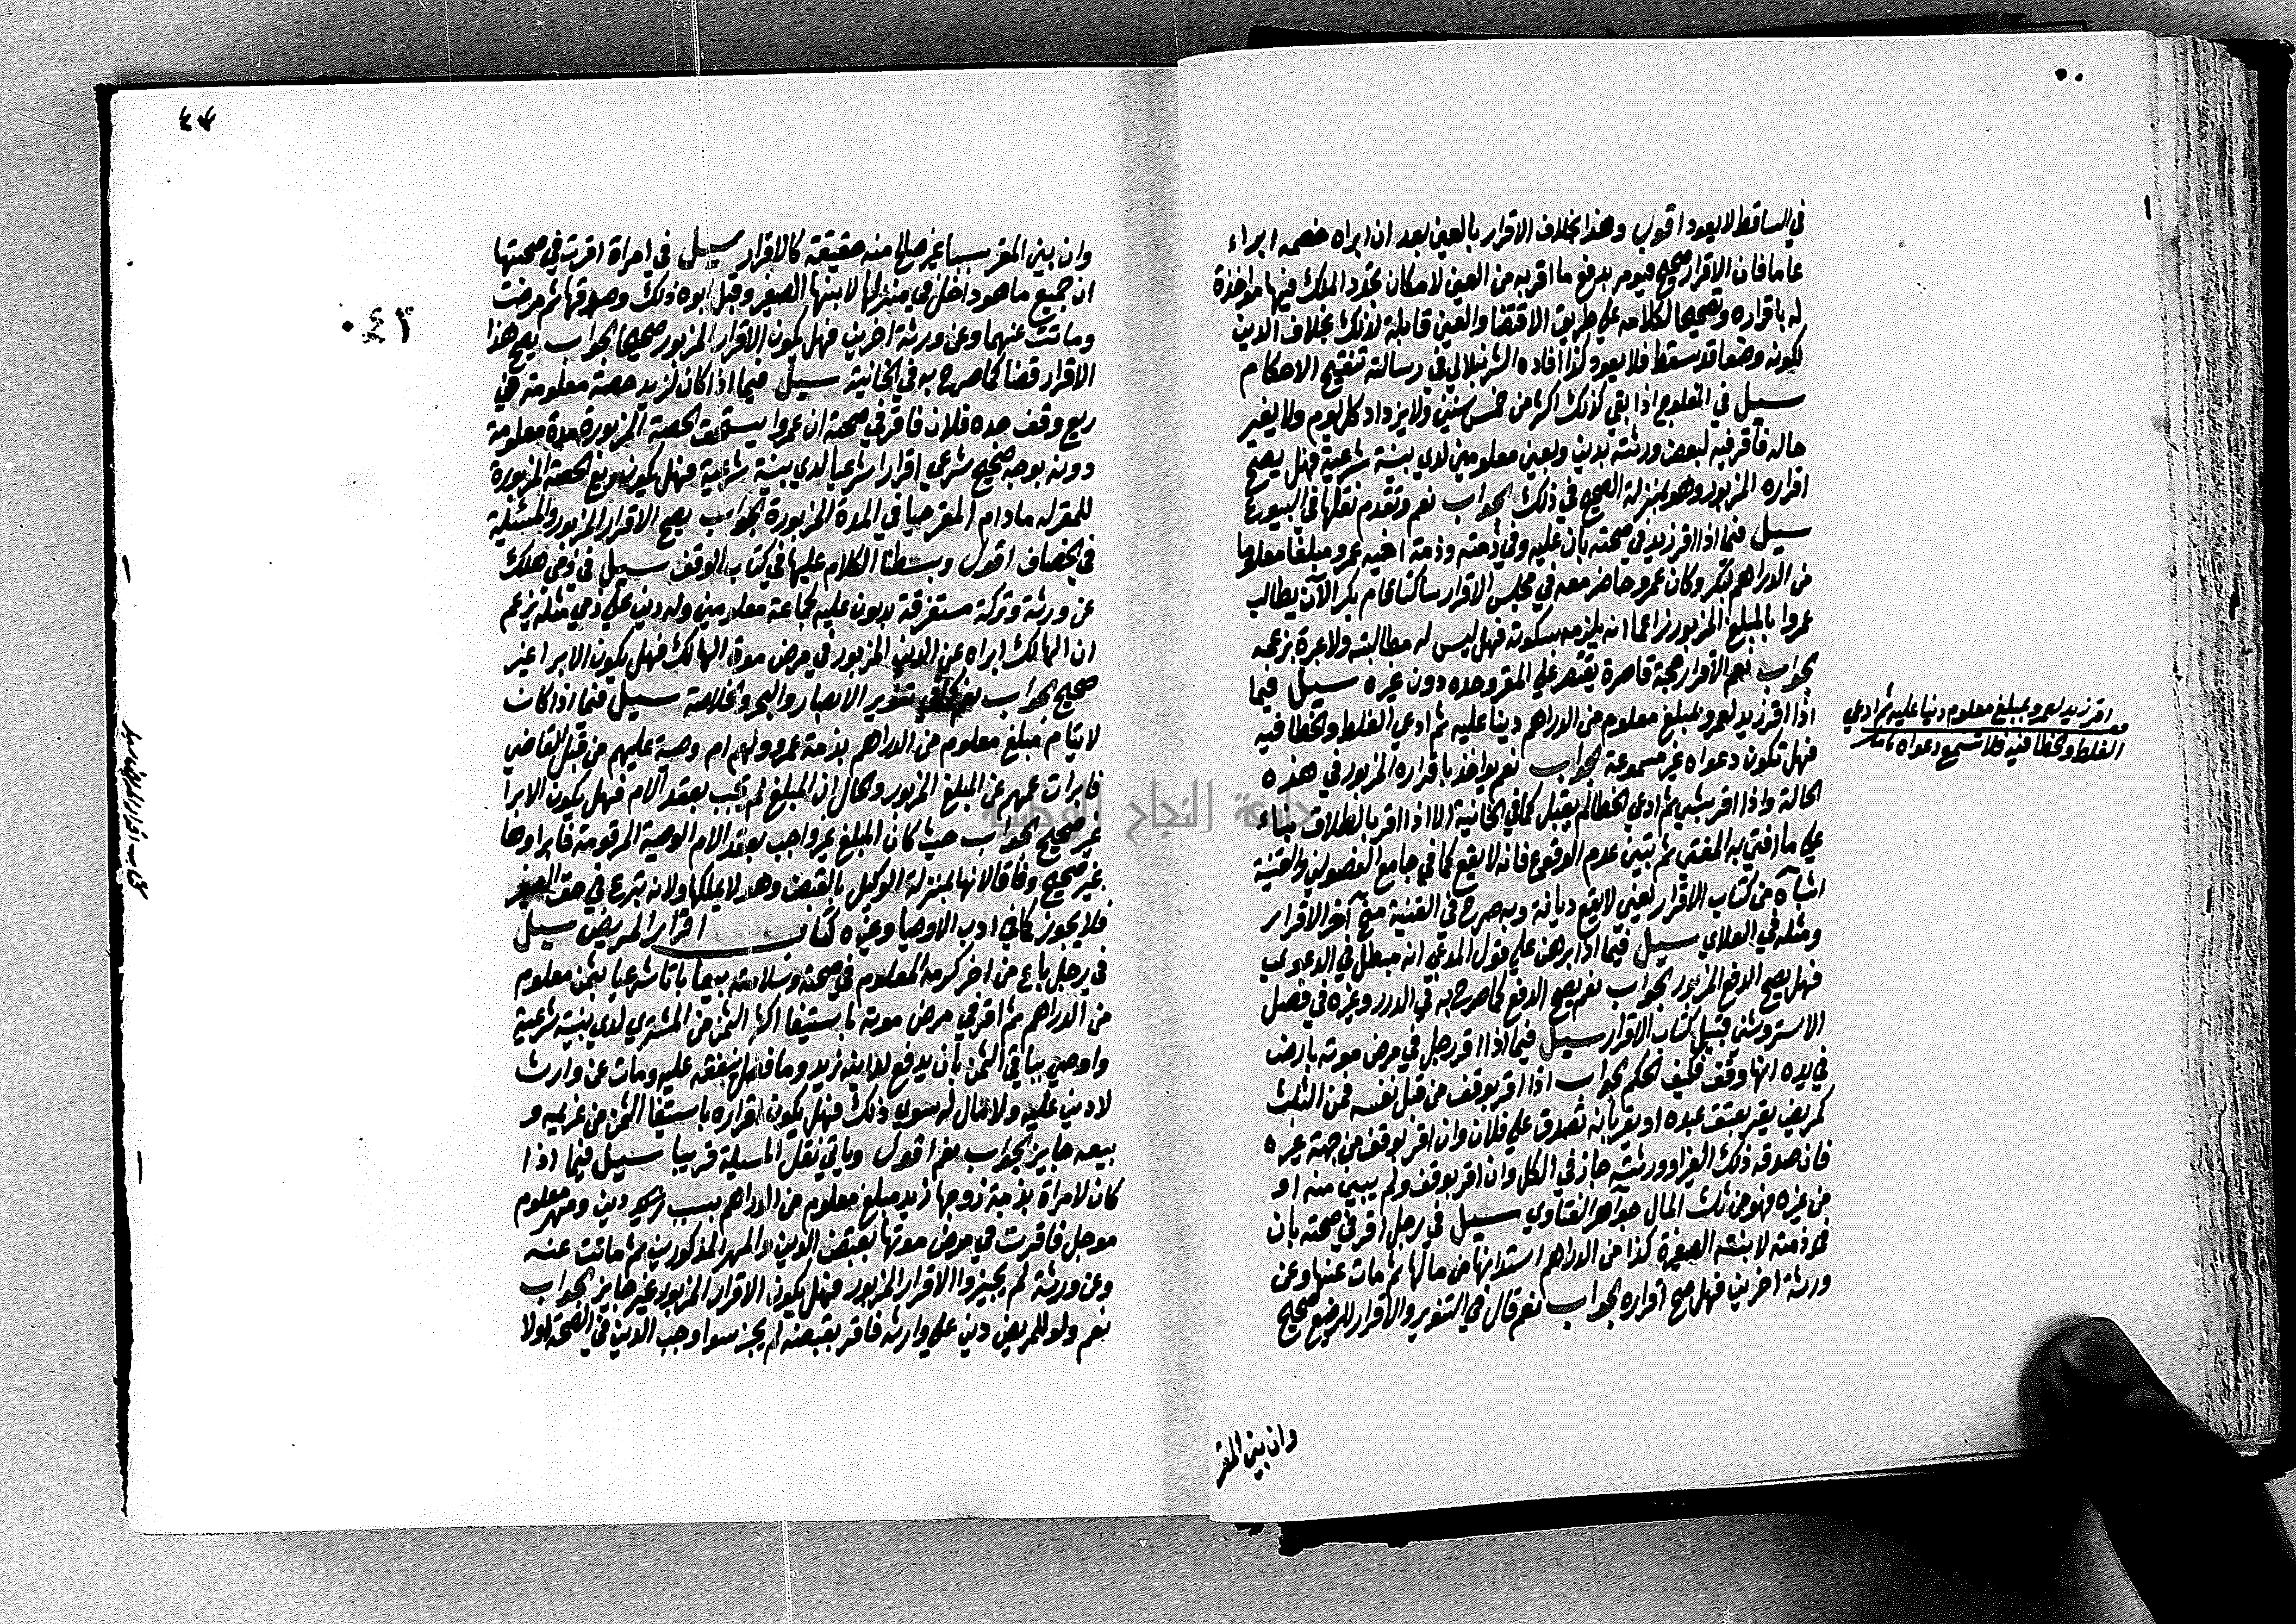 في الساقط لا يعود اقول وهذا بخلاف الاقرار بالعين بعد ان ابراه خصمه ابراء
عاما فان الاقرار صحيح فيومر بدفع ما اقر به من العين لامكان تجدد الملك فيها مواخذة
له باقراره وتصحيحا لكلامه علي طريق الاقتضا والعين قابلة لذلك بخلاف الدين
لكونه وصفا قد سقط فلا يعود كذا افاده الشرنبلالي في رسالته تنقيح الاحكام
سيل في المفلوج اذا بقي كذلك اكثر من خمس سنين ولا يزداد كل يوم ولا يغير
حاله فاقر فيه لبعض ورثته بدين وبعين معلومين لدي بينة شرعية فهل يصح
اقراره المزبور وهو بمنزلة الصحيح في ذلك الجواب نعم وتقدم نقلها في البيوع
سيل فيما اذا اقر زيد في صحته بان عليه وفي ذمته وذمة اخيه عمرو مبلغا معلوما
من الدراهم لبكر وكان عمرو حاضر معه في مجلس الاقرار ساكتا قام بكر الآن يطالب
عمروا بالمبلغ المزبور زاعما انه يلزمه بسكوته فهل ليس له مطالبته ولا عبرة بزعمه
الجواب نعم الاقرار حجة قاصرة يقتصر علي المقر وحده دون غيره سيل فيما
اذا اقر زيد لعمرو بمبلغ معلوم من الدراهم دينا عليه ثم ادعي الغلط والخطا فيه
فهل تكون دعواه غير مسموعة الجواب نعم يواخذ باقراره المزبور في هذه
الحالة واذا اقر بشي ثم ادعي الخطا لم يقبل كما في الخانية الا اذا اقر بالطلاق بناء
علي ما افتي به المفتي ثم تبين عدم الوقوع فانه لا يقع كما في جامع الفصولين والقنية
اشباه من كتاب الاقرار يعني لا يقع ديانة وبه صرح في القنية منح آخر الاقرار
ومثله في العلاي سيل فيما اذا برهن علي قول المدعي انه مبطل في الدعوي
فهل يصح الدفع المزبور الجواب نعم يصح الدفع كما صرح به في الدرر وغيره في فصل
الاستروشني قبيل كتاب الاقرار سيل فيما اذا اقر رجل في مرض موته بارض
في يده انها وقف فكيف الحكم الجواب اذا اقر بوقف من قبل نفسه فمن الثلث
كمريض يقر بعتق عبده او يقر بانه تصدق علي فلان وان اقر بوقف من جهة غيره
فان صدقه ذلك الغير او ورثته جاز في الكل وان اقر بوقف ولم يبين منه او
من غيره فهو من ثلث المال جواهر الفتاوي سيل في رجل اقر في صحته بان
في ذمته لابنته الصغيرة كذا من الدراهم استدانها من مالها ثم مات عنها وعن
ورثة اخرين فهل صح اقراره الجواب نعم قال في التنوير والاقرار للرضيع صحيح
وان بين المقر
اقر زيد لعمرو بمبلغ معلوم دينا عليه ثم ادعي
الغلط والخطا فيه فلا تسمع دعواه
٤٣
٠٤٢
وان بين المقر سببا غير صالح منه حقيقة كالاقرار سيل في امراة اقرت في صحتها
ان جميع ما هو داخل في منزلها لابنها الصغير وقبل ابوه ذلك وصدقها ثم مرضت
وماتت عنهما وعن ورثة اخرين فهل يكون الاقرار المزبور صحيحا الجواب يصح هذا
الاقرار قضا كما صرح به في الخانية سيل فيما اذا كان لزيد حصة معلومة في
ريع وقف جده فلان فاقر في صحته ان عمروا يستحق الحصة المزبورة مدة معلومة
دونه بوجه صحيح شرعي اقرارا شرعيا لدي بينة شرعية فهل يكون ريع الحصة المزبورة
للمقر له ما دام المقر حيا في المدة المزبورة الجواب يصح الاقرار المزبور والمسئلة
في الخصاف اقول وبسطنا الكلام عليها في كتاب الوقف سيل في ذمي هلك
عن ورثة وتركة مستغرقة بديون عليه لجماعة معلومين وله دين علي ذمي مثله يزعم
ان الهالك ابراه عن الدين المزبور في مرض موته الهالك فهل يكون الابرا غير
صحيح الجواب نعم كما في تنوير الابصار والبحر والخلاصة سيل فيما اذا كان
لايتام مبلغ معلوم من الدراهم بذمة عمرو ولهم ام وصية عليهم من قبل القاضي
فابرات عمرو عن المبلغ المزبور والحال ان المبلغ لم يجب بعقد الام فهل يكون الابرا
غير صحيح الجواب حيث كان المبلغ غير واجب بعقد الام الوصية المرقومة فابراوها
غير صحيح وفاقا لانها بمنزلة الوكيل بالقبض وهو لا يملكها ولانه تبرع في حق الصغير
فلا يجوز كما في ادب الاوصيا وغيره كتاب اقرار المريض سيل
في رجل باع من اخر كرمه المعلوم في صحته وسلامته بيعا باتا شرعيا بثمن معلوم
من الدراهم ثم اقر في مرض موته باستيفا اكثر الثمن من المشتري لدي بينة شرعية
واوصي بباقي الثمن بان يدفع لدا ينه زيد وما فضل ينفقه عليه ومات عن وارث
لا دين عليه ولا مال له سوي ذلك فهل يكون اقراره باستيفا الثمن من غريمه و
بيعه جايز الجواب نعم اقول وياتي نقل المسيلة قريبا سيل فيما اذا
كان لامراة بذمة زوجها زيد مبلغ معلوم من الدراهم بسبب دين ومهر معلوم
موجل فاقرت في مرض موتها بقبض الدين والمهر المذكورين ثم ماتت عنه
وعن ورثة لم يجيزوا الاقرار المزبور فهل يكون الاقرار المزبور غير جايز الجواب
نعم ولو للمريض دين علي وارثه فاقر بقبضه لم يجز سوا وجب الدين في الصحة اولا
جامعة النجاح الوطنية